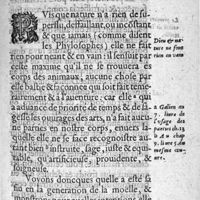 Vis que nature n'a rien de su-
perflu, deffaillant, ou incostant
& que iamais (comme disent
les Philosophes) elle ne fait
rien pour neant & en vain: il s'ensuit par
cette maxime qu'il ne se trouuera és
corps des animaux, aucune chose par
elle bastie & façonnee qui soit fait teme-
rairement & à l'auenture, car elle qui
a deuancé de priorité de temps & de la-
gesse les ouurages des arts, n'a fait aucu-
ne parties en nostre corps, enuers la-
quelle elle ne se face recognoistre au-
tant bien instruite, sage, iuste & equi-
table, qu'artificieuse, prouidente, &
soigneuse.
Voyons doncques quelle a esté sa
fin en la generation de la moëlle, &
monstrons
Dieu & na-
ture ne font
rien en vain
a Galien au
liure de
l'vsage des
parties ch. 13
& au chap.
liure 5. du
mesme œuure.